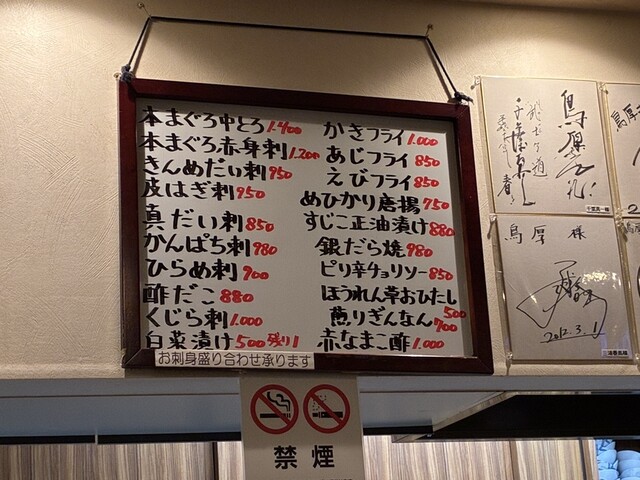 本まぐろ中とろ 1.400
本まぐろ赤身刺 1.200
きんめだい刺 950
皮はぎ刺 950
真だい刺 850
かんぱち刺 980
ひらめ刺 900
酢だこ 880
くじら刺 1.000
白菜漬け 500 残り1
かきフライ 1.000
あじフライ 850
えびフライ 850
めひかり唐揚 750
すじこ正油漬け 880
銀だら焼 980
ピリ辛チョリソー 850
ほうれん草おひたし 500
煎りぎんなん 700
赤なまこ酢 1.000
お刺身盛り合わせ承ります
禁煙
鳥厚
鳥厚 様
2012.3.1